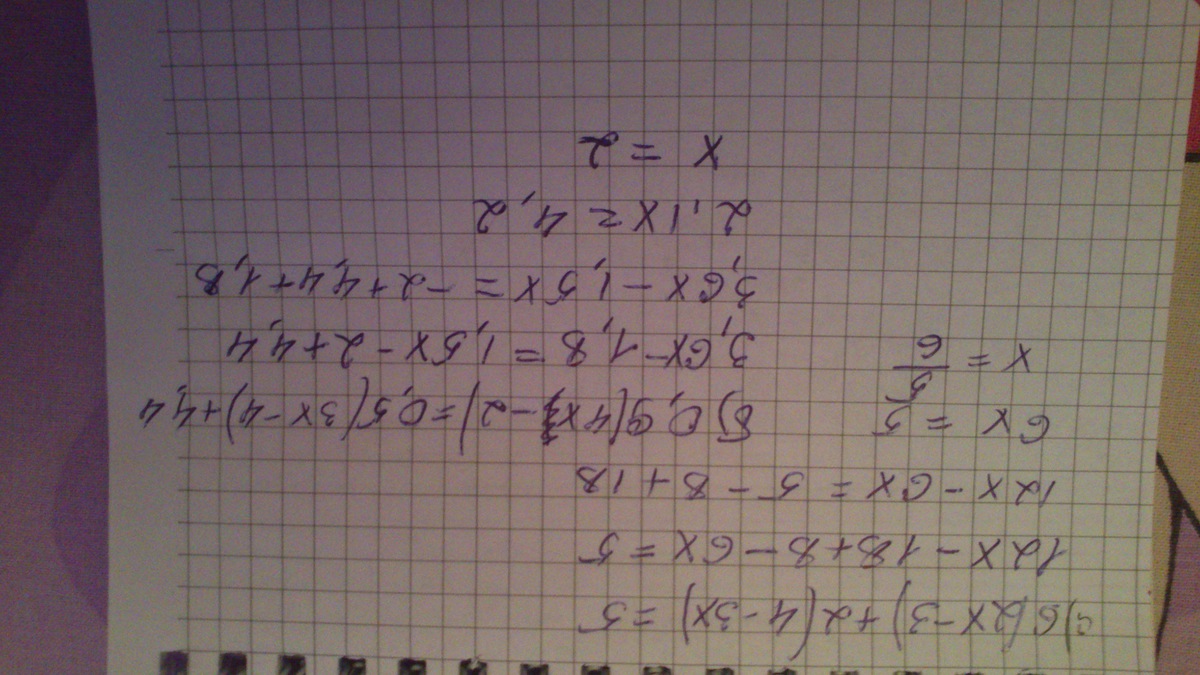 а) 6(2x-3)+2(4-3x)=5
12x-18+8-6x=5
12x-6x=5-8+18
6x=5
x=5/6
б) 0,9(4x-2)=0,5(3x-4)+4,4
3,6x-1,8=1,5x-2+4,4
3,6x-1,5x=-2+4,4+1,8
2,1x=4,2
x=2